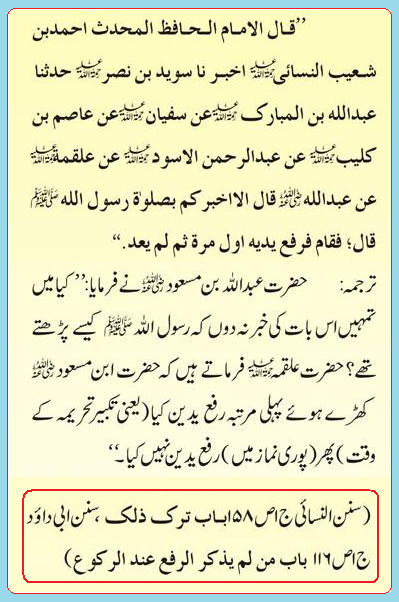 ’’قال الامام الحافظ المحدث احمدبن
شعیب النسائی رحمۃ اللہ علیہ اخبر نا سوید بن نصر رحمۃ اللہ علیہ حدثنا
عبدالله بن المبارک رحمۃ اللہ علیہ عن سفیان رحمۃ اللہ علیہ عن عاصم بن
کلیب رحمۃ اللہ علیہ عن عبدالرحمن الاسود رحمۃ اللہ علیہ عن علقمة رحمۃ اللہ علیہ
عن عبدالله رضی اللہ عنہ قال الااخبرکم بصلوٰة رسول الله ﷺ
قال؛ فقام فرفع یدیه اول مرة ثم لم یعد.‘‘
ترجمہ: حضرت عبداللہ بن مسعود رضی اللہ عنہ نے فرمایا:’’کیا میں
تمہیں اس بات کی خبر نہ دوں کہ رسول اللہ ﷺ کیسے پڑھتے
تھے؟ حضرت علقمہ رحمۃ اللہ علیہ فرماتے ہیں کہ حضرت ابن مسعود رضی اللہ عنہ
کھڑے ہوئے پہلی مرتبہ رفع یدین کیا (یعنی تکبیر تحریمہ کے
وقت) پھر (پوری نماز میں) رفع یدین نہیں کیا۔‘‘
(سنن النسائی ج۱ص۵۸ اباب ترک ذلک، سنن ابی داؤد
ج۱ص۱۱۶ باب من لم یذکر الرفع عند الرکوع)